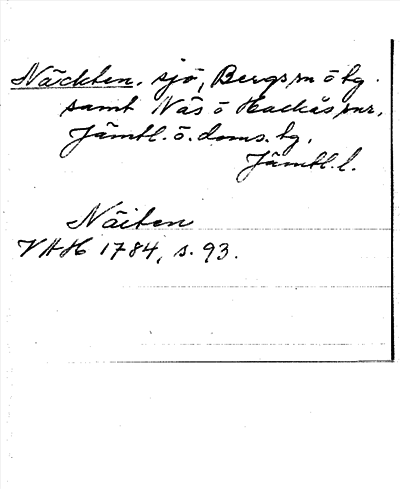 Näckten, sjö, Bergs sn o tg.
samt Näs o Hackås snr,
Jämtl. ö. doms. tg,
Jämtl. l.
Näiten
VAH 1784, s. 93.